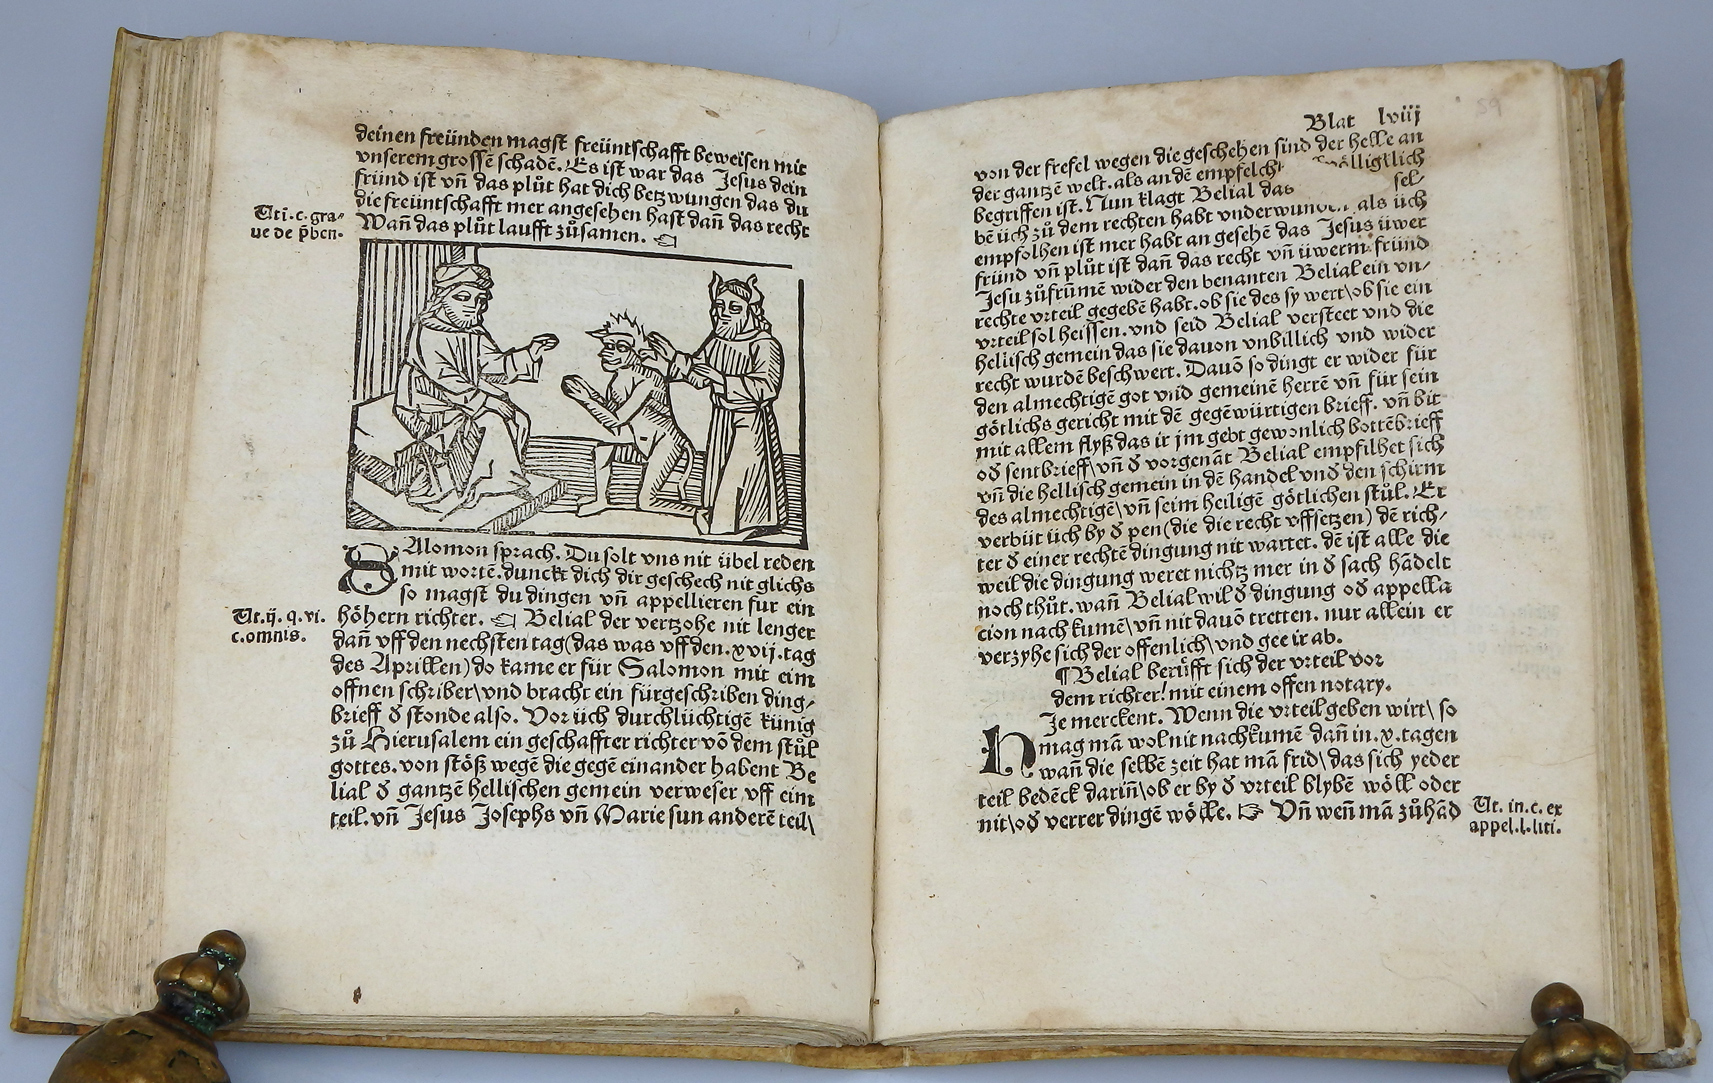 deinen freünden magst freüntschafft beweisen mit
vnserem grossē schadē. Es ist war das Jesus dein
fründ ist vñ das plůt hat dich betzwungen das du
die freüntschafft mer angesehen hast dañ das recht
Wañ das plůt laufft zůsamen. ☜
Ut i. c. gra⸗
ue de p̄ben.
SAlomon sprach. Du solt vns nit übel reden
mit wortē. dunckt dich dir geschech nit glichs
so magst du dingen vñ appellieren für ein
höhern richter. ☜ Belial der vertzohe nit lenger
dañ vff den nechsten tag (das was vff den .xvij. tag
des Aprillen) do kame er für Salomon mit eim
offnen schriber\ vnd bracht ein fürgeschriben ding⸗
brieff ď stonde also. Vor üch durchlüchtigē künig
zů Hierusalem ein geschaffter richter vō dem stůl
gottes. von stöß wegē die gegē einander habent Be
lial ď gantzē hellischen gemein verweser vff eim
teil. vñ Jesus Josephs vñ Marie sun anderē teil\
Ut. ij. q. vi.
c. omnis.
Blat lviij
59
von der frefel wegen die geschehen sind der helle an
der gantzē welt. als an dē empfelch völligklich
begriffen ist. Nun klagt Belial das sel⸗
bē üch zů dem rechten habt vnderwunden als üch
empfolhen ist mer habt an gesehē das Jesus üwer
fründ vñ plůt ist dañ das recht vñ üwerm fründ
Jesu zůfrümē wider den benanten Belial ein vn⸗
rechte vrteil gegebē habt. ob sie des sy wert\ ob sie ein
vrteil sol heissen. vnd seid Belial versteet vnd die
hellisch gemein das sie dauon vnbillich vnd wider
recht wurdē beschwert. Dauō so dingt er wider für
den almechtigē got vnd gemeinē herrē vñ für sein
götlichs gericht mit dē gegēwürtigen brieff. vñ bit
mit allem flyß das ir jm gebt gewonlich bottēbrieff
oď sentbrieff\ vñ ď vorgenāt Belial empfilhet sich
vñ die hellisch gemein in dē handel vnd den schirm
des almechtigē\ vñ seim heiligē götlichen stůl. Er
verbüt üch by ď pen (die die recht vffsetzen) dē rich⸗
ter ď einer rechtē dingung nit wartet. dē ist alle die
weil die dingung weret nichtz mer in ď sach hādelt
noch thůt. wañ Belial wil ď dingung oď appella
cion nach kumē\ vñ nit dauō tretten. nur allein er
verzyhe sich der offenlich\ vnd gee ir ab.
¶ Belial berüfft sich der vrteil vor
dem richter! mit einem offen notary.
HJe merckent. Wenn die vrteil geben wirt\ so
mag mā wol nit nachkumē dañ in .x. tagen
wañ die selbē zeit hat mā frid\ das sich yeder
teil bedēck dariñ\ ob er by ď vrteil blybē wöll oder
nit\ oď verrer dingē wölle. ☞ Vñ weñ mā zůhād
Ut. in. c. ex
appel. l. liti.